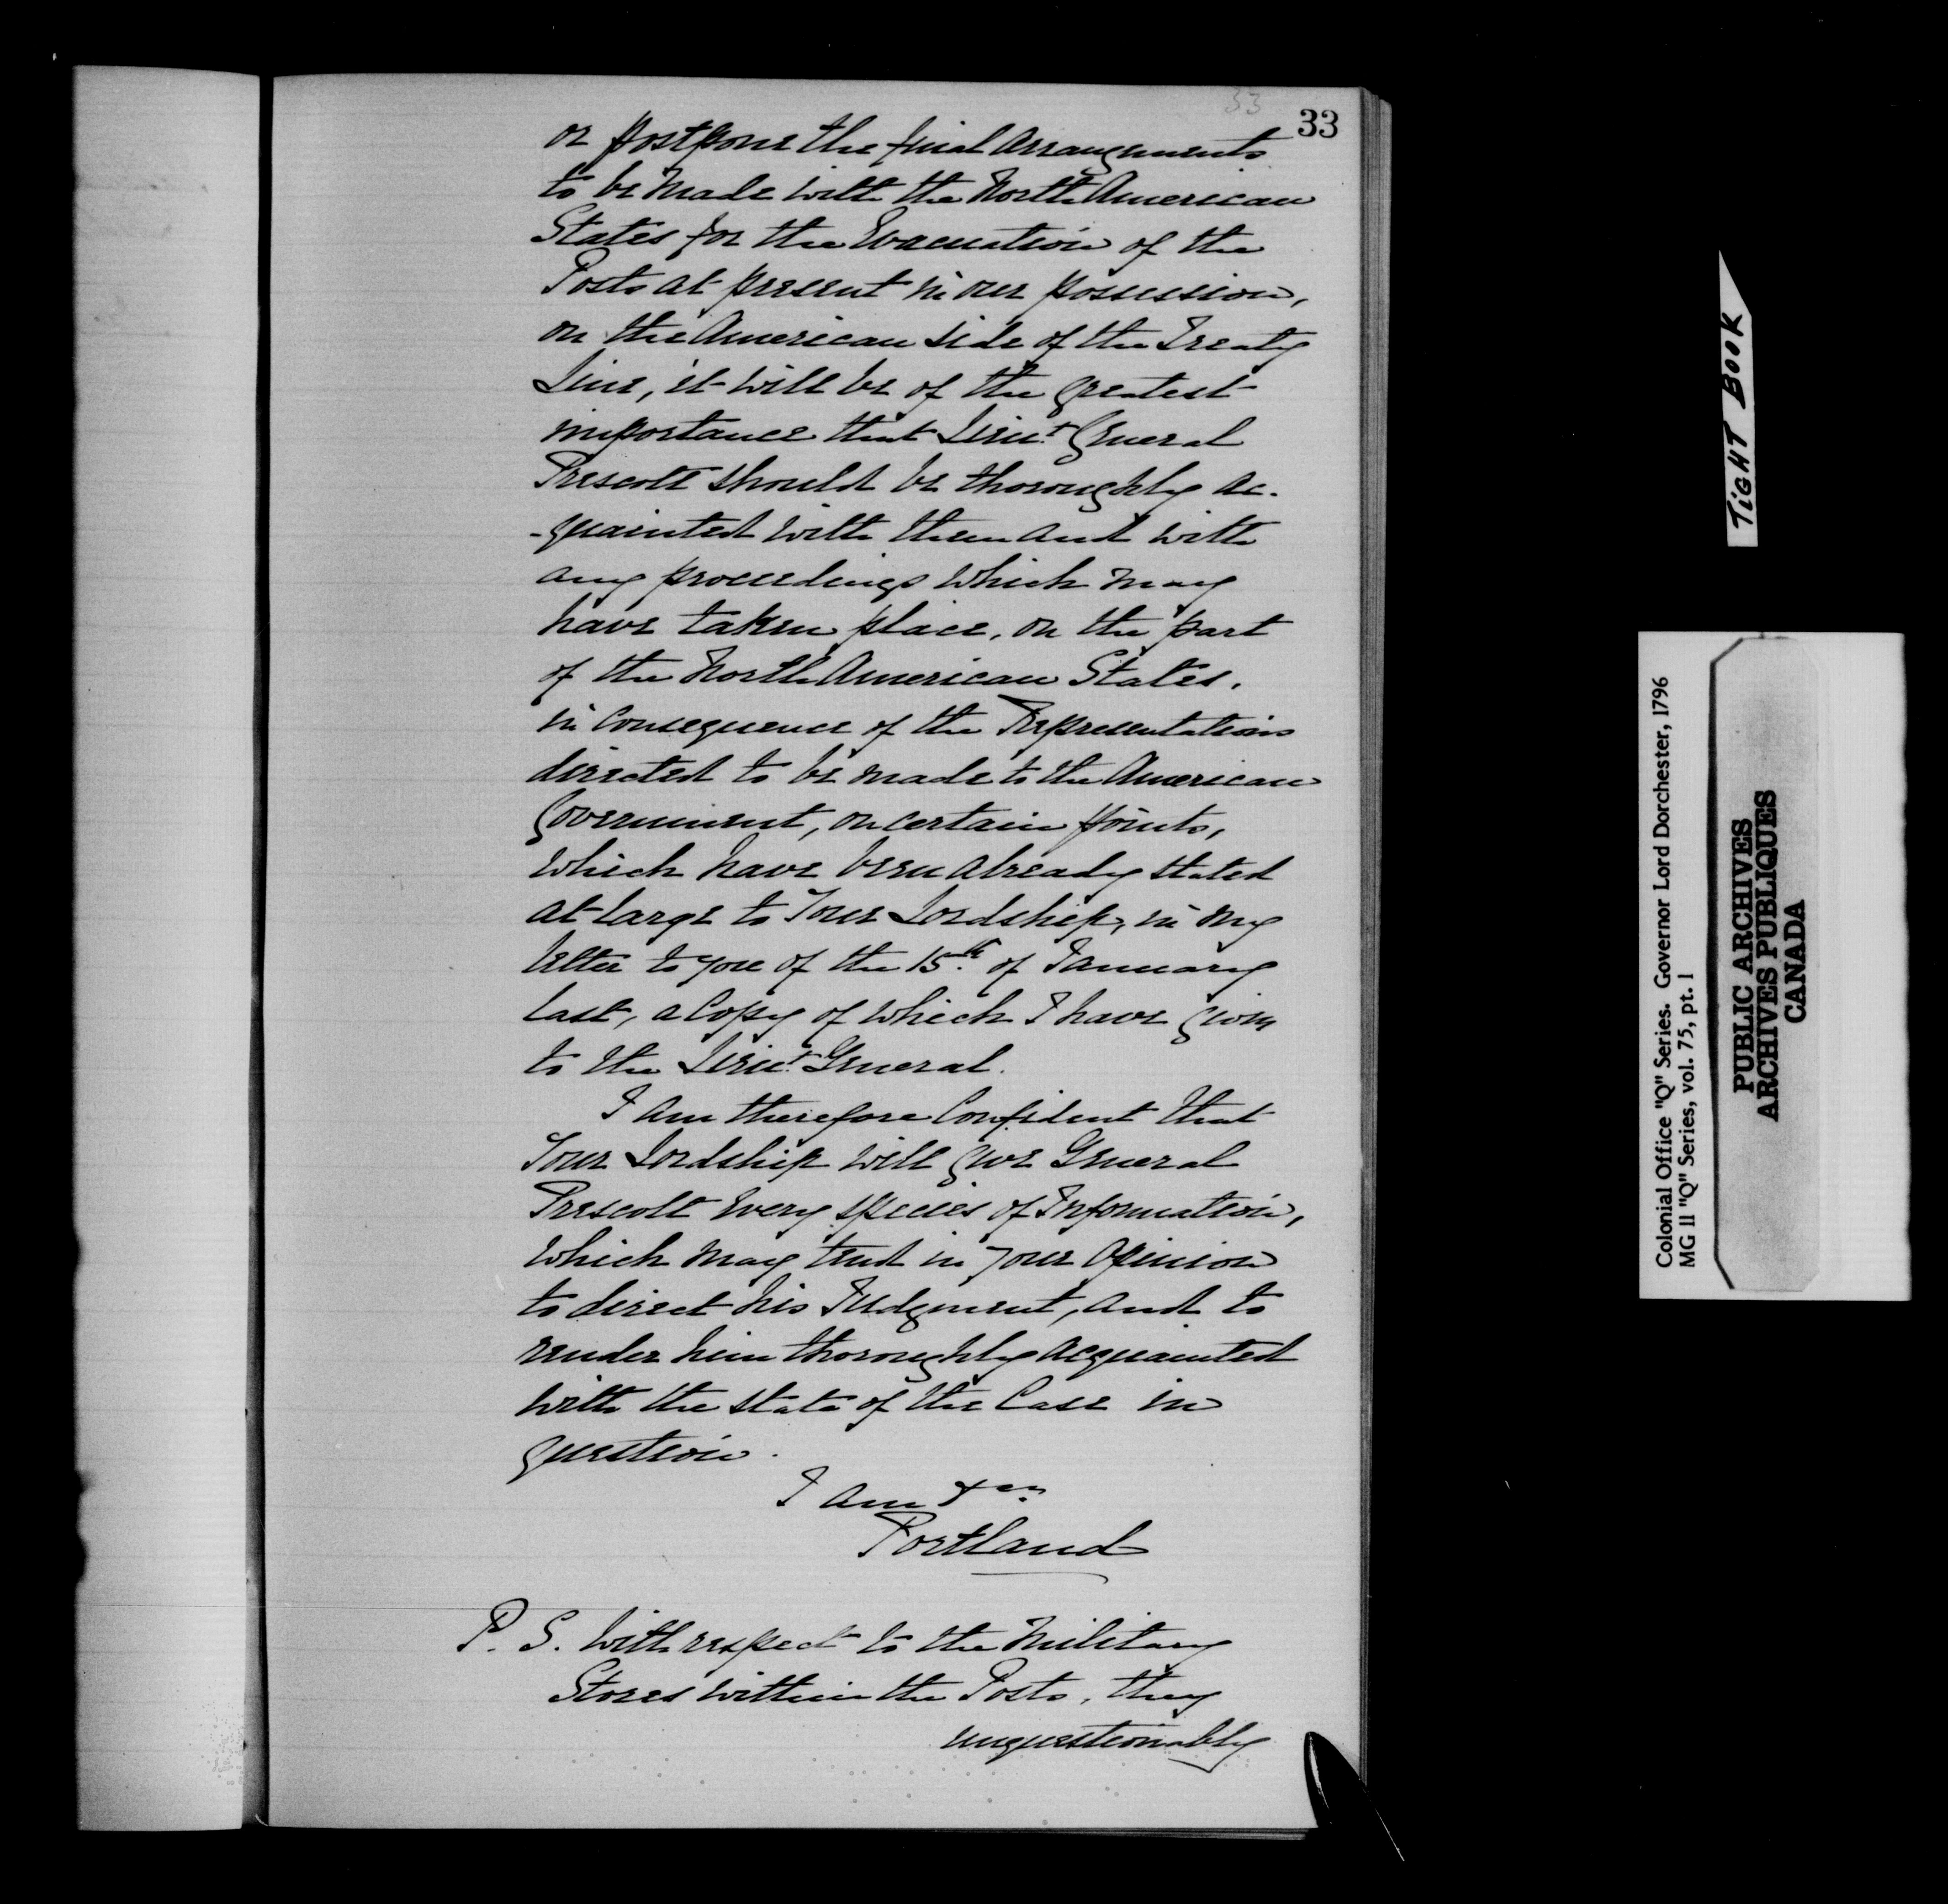 33
33
or postpone the final Arrangements
to be made with the North American
States for the Evacuation of the
Posts at present in our possession,
on the American side of the Treaty
Line, it will be of the greatest
importance that Lieut. General
Prescott should be thoroughly ac-
-quainted with them and with
any proceedings which may
have taken place, on the part
of the North American States,
in consequence of the Representations
directed to be made to the American
Government, on certain points,
which have been already stated
at large to Your Lordship, in my
letter to you of the 15th of January
last, a Copy of which I have given
to the Lieut. General.
I am therefore confident that
Your Lordship will give General
Prescott every species of Information,
which may tend in your opinion
to direct his Judgment, and to
render him thoroughly acquainted
with the state of the Case in
question.
I am &ca
Portland
P. S. With respect to the Military
Stores within the Posts, they
unquestionably
TiGHT BOOK
Colonial Office "Q" Series. Governor Lord Dorchester, 1796
MG 11 "Q" Series, vol. 75, pt. 1
PUBLIC ARCHIVES
ARCHIVES PUBLIQUES
CANADA